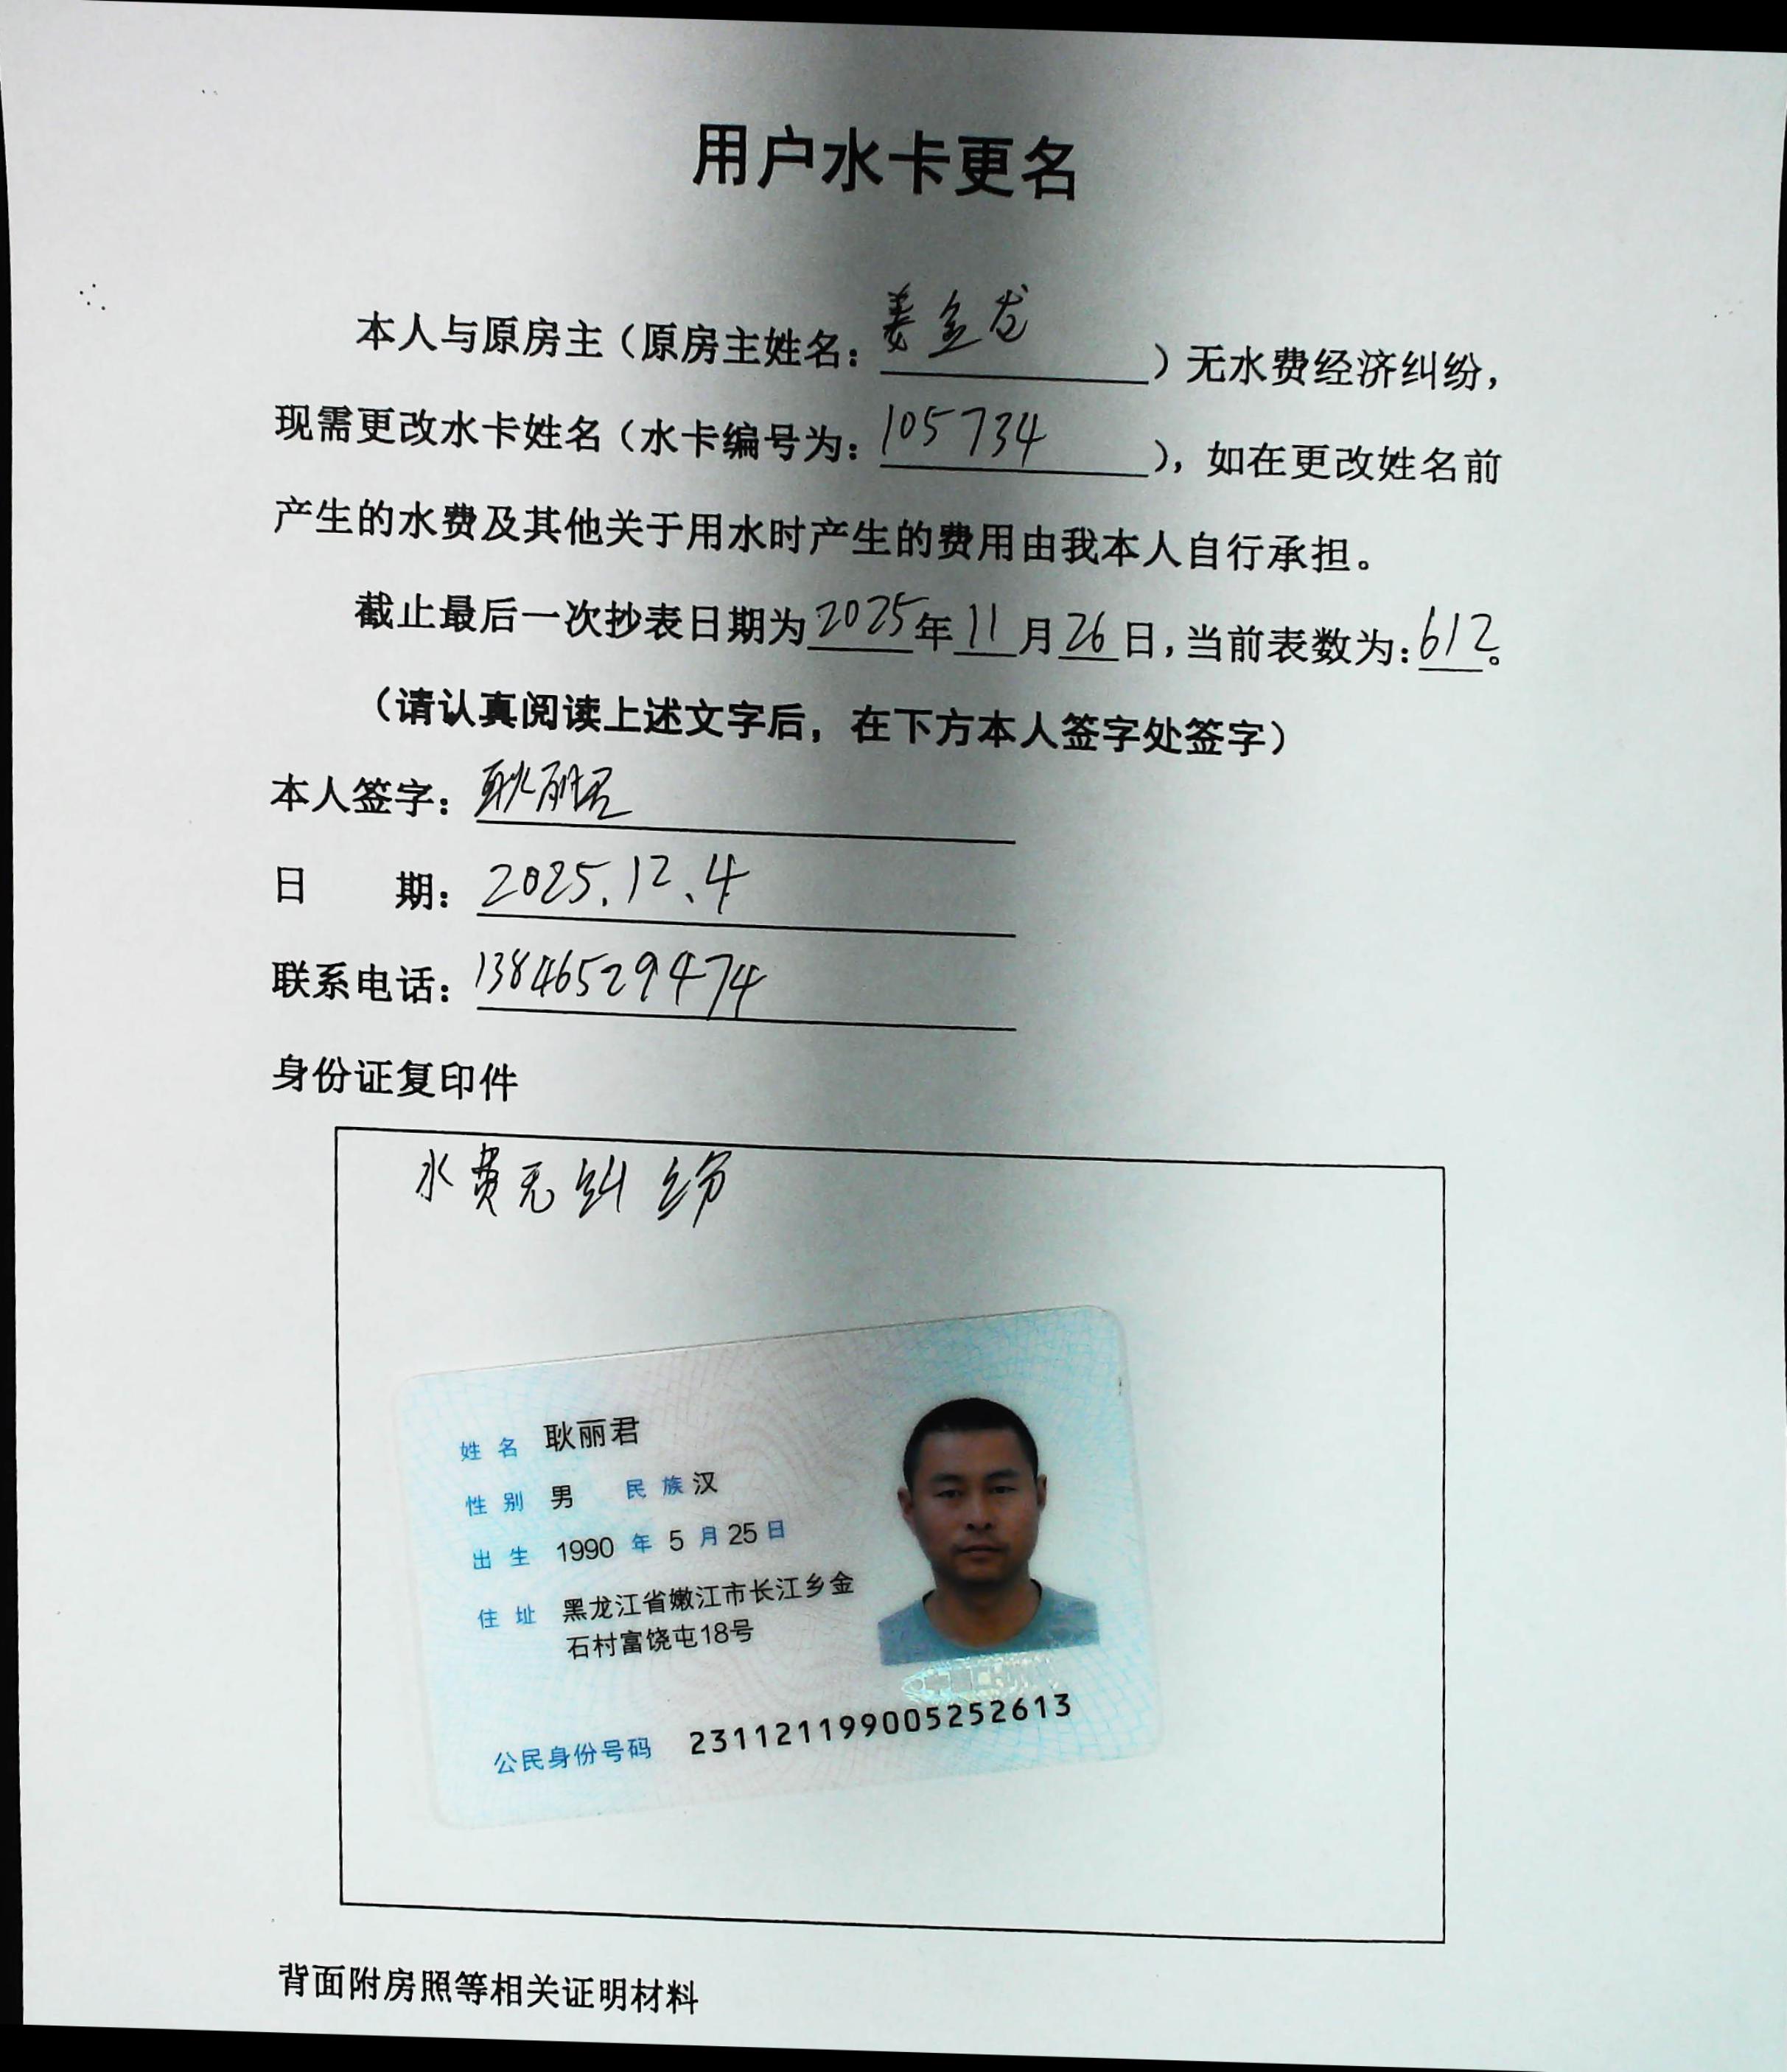 用户水卡更名
本人与原房主（原房主姓名：姜金龙）无水费经济纠纷，
现需更改水卡姓名（水卡编号为：105734），如在更改姓名前
产生的水费及其他关于用水时产生的费用由我本人自行承担。
截止最后一次抄表日期为2025年11月26日，当前表数为：612。
（请认真阅读上述文字后，在下方本人签字处签字）
本人签字：耿丽君
日 期：2025.12、4
联系电话：13846529474
身份证复印件
水费无纠纷
姓名 耿丽君
性别 男 民族 汉
出生 1990 年 5 月 25 日
住址 黑龙江省嫩江市长江乡金
石村富饶屯18号
公民身份号码 231121199005252613
背面附房照等相关证明材料